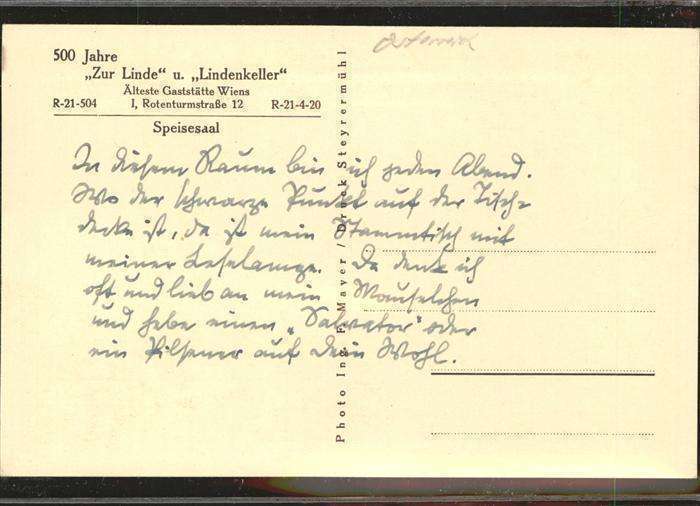 Österreich
500 Jahre
„Zur Linde“ u. „Lindenkeller“
Älteste Gaststätte Wiens
R-21-504 I, Rotenturmstraße 12 R-21-4-20
Speisesaal
In diesem Raum bin ich jeden Abend.
Wo der schwarze Punkt auf der Tisch=
decke ist, da ist mein Stammtisch mit
meiner Leselampe. Da denk ich
oft und lieb an mein Mauselchen
und hebe einen „Salvator“ oder
ein Pilsener auf Dein Wohl.
Photo Ing. F. Mayer / Druck Steyrermühl